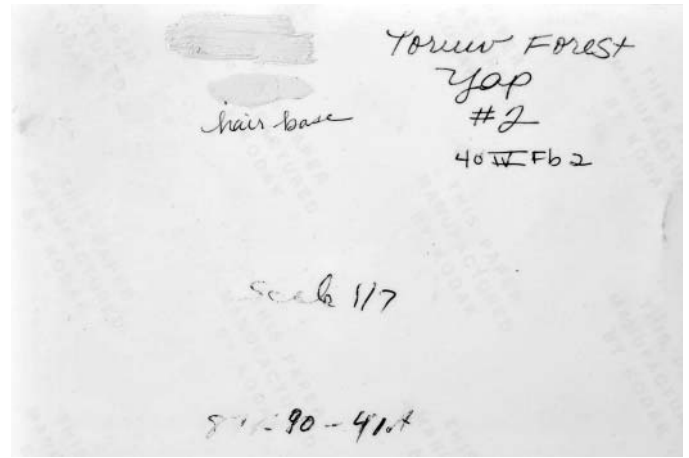 Toruw Forest
Yap
#2
hair base
40 IV Fb 2
1/7
90-41A
THIS PAPER
MANUFACTURED
BY KODAK